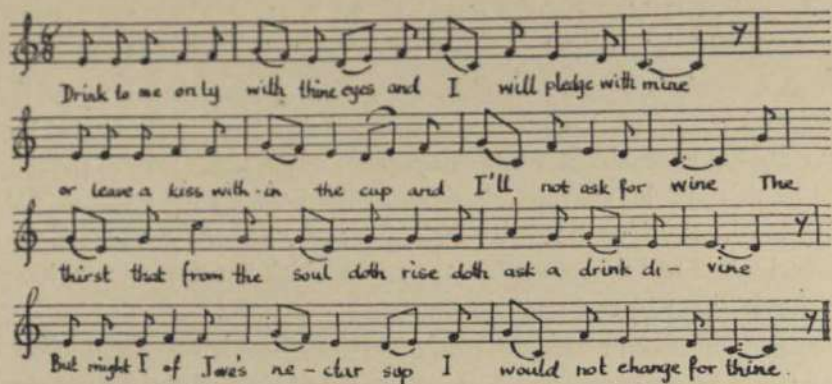 Drink to me only with thine eyes and I will pledge with mine
or leave a kiss with-in the cup and I'll not ask for wine The
thirst that from the soul doth rise doth ask a drink di- vine
But might I of Jove's ne-ctar sup I would not change for thine.